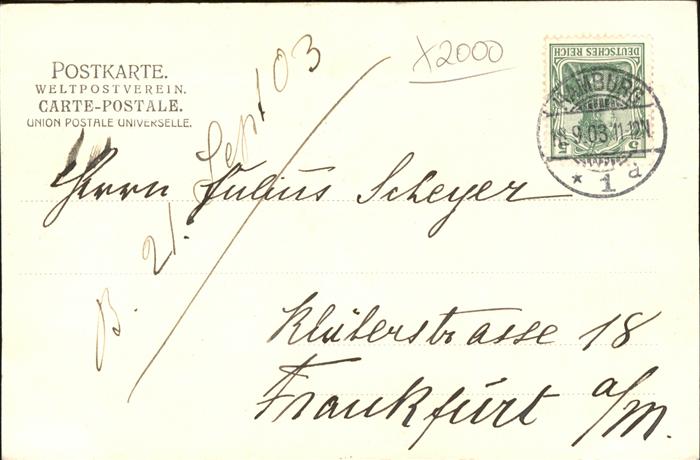 POSTKARTE.
WELTPOSTVEREIN.
CARTE-POSTALE.
UNION POSTALE UNIVERSELLE.
x2000
DEUTSCHES REICH
5 5
HAMBURG
9.03.11-12N.
* 1 d
B. 21. Sept 03
Herrn Julius Scheyer
Klüberstrasse 18
Frankfurt a/M.